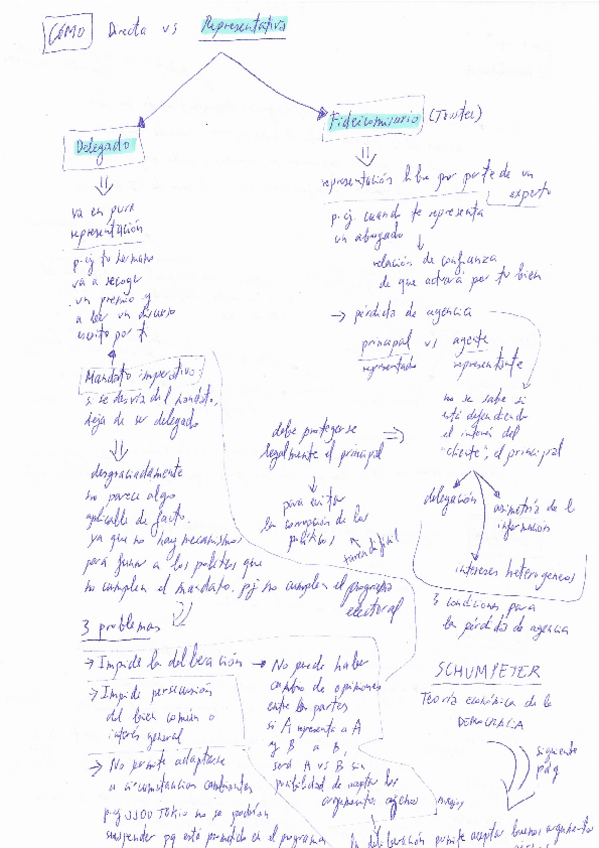 CÓMO Directa vs Representativa
Delegado
va en pura
representación
p.ej tu hermano
va a recoger
un premio y
a leer un discurso
escrito por ti
Mandato imperativo:
si se desvía del mandato,
deja de ser delegado
desgraciadamente
no parece algo
aplicable de facto.
ya que no hay mecanismos
para a los políticos que
no cumplen el mandato. pej no cumplen el programa
electoral
3 problemas
→ Impide la deliberación → No puede haber
cambio de opiniones
entre las partes
si A representa a A
y B a B,
será A vs B sin
posibilidad de aceptar los
argumentos ajenos mejores
→ Impide persecución
del bien común o
interés general
→ No permite adaptarse
a circunstancias cambiantes
p.ej JJOO TOKIO no se podrían
suspender pq está prometido en el programa
Fideicomisario (Trustee)
representación libre por parte de un
experto
p.ej. cuando te representa
un abogado
relación de confianza
de que actuará por tu bien
→ pérdida de agencia
principal vs agente
representado representante
no se sabe si
está defendiendo
el interés del
"cliente", el principal
debe protegerse
legalmente el principal
para evitar
la corrupción de los
políticos
tarea difícil
delegación
asimetría de la
información
intereses heterogéneos
3 condiciones para
la pérdida de agencia
SCHUMPETER
Teoría económica de la
DEMOCRACIA
siguiente
pág
la deliberación permite aceptar buenos argumentos